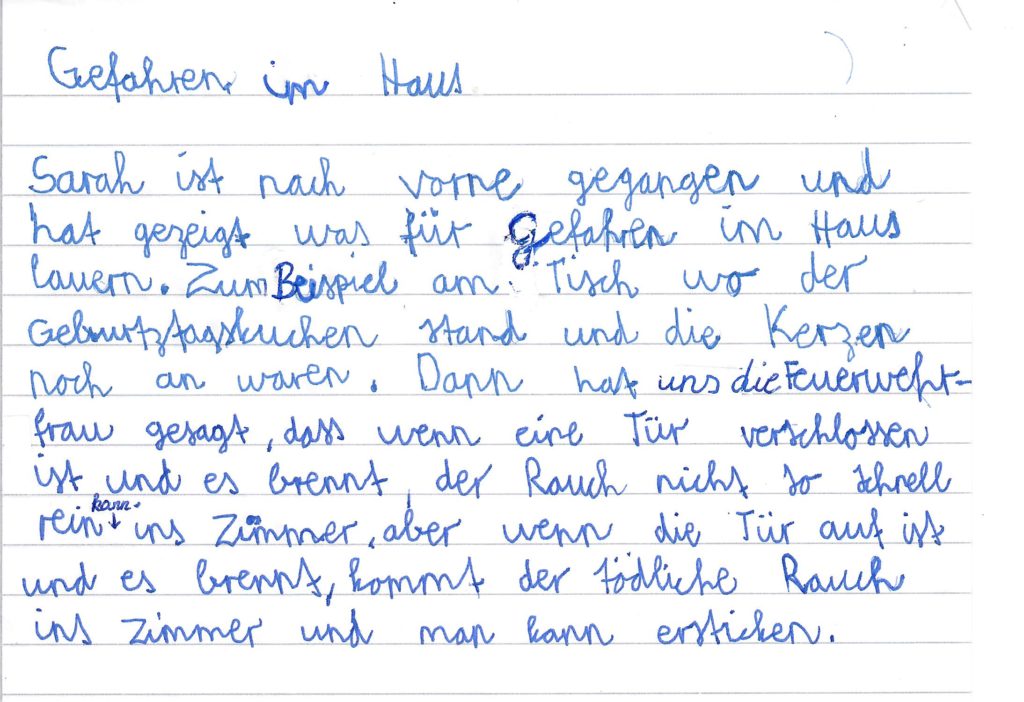 Gefahren im Haus
Sarah ist nach vorne gegangen und
hat gezeigt was für Gefahren im Haus
lauern. Zum Beispiel am Tisch wo der
Geburtztagskuchen stand und die Kerzen
noch an waren. Dann hat uns die Feuerwehr-
frau gesagt, dass wenn eine Tür verschlossen
ist und es brennt, der Rauch nicht so schnell
kann
rein ins Zimmer, aber wenn die Tür auf ist
und es brennt, kommt der tödliche Rauch
ins Zimmer und man kann ersticken.